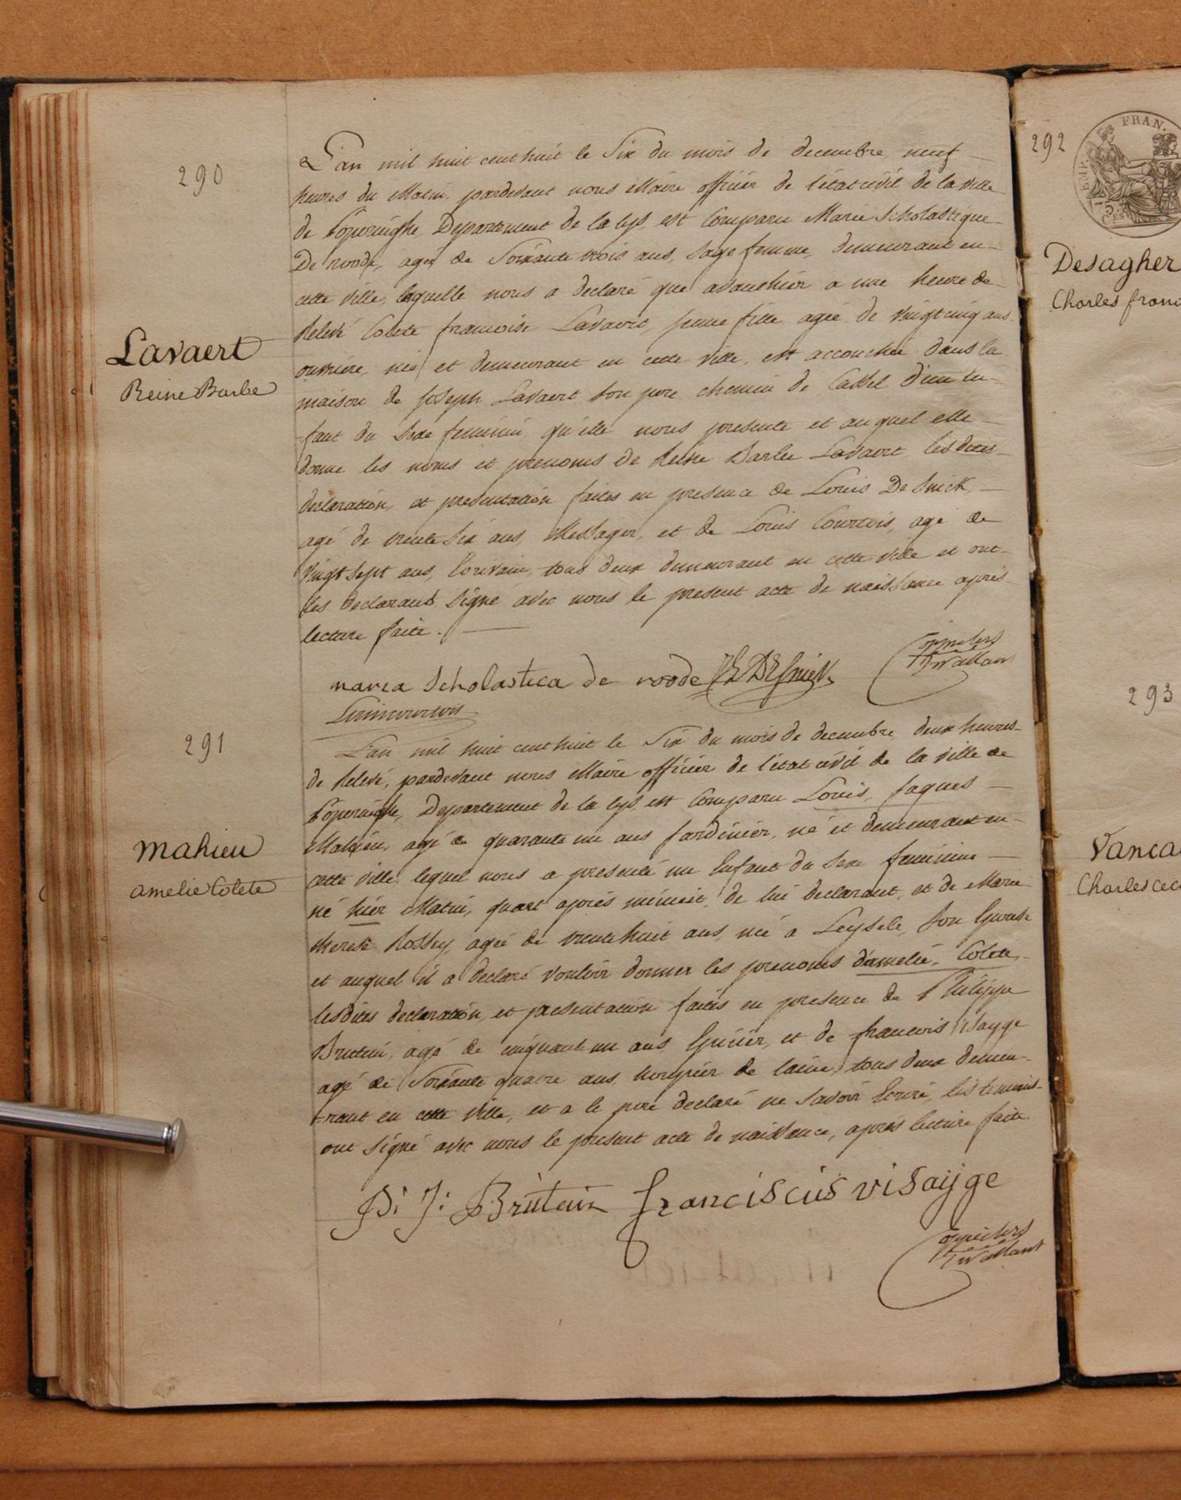 290
Lavaert
Reine Barbe
L'an mil huit cent huit le Six du mois de decembre neuf
heures du Matin pardevant nous Maire officier de l'état civil de la ville
de Poperinghe Departement de la Lys est Comparu Marie Scholastique
De roode, agée de Soixante trois ans, Sage femme, demeurant en
cette ville, laquelle nous a declaré que avanthier a une heure de
Relevé Colete francoise Lavaert jeune fille agée de vingt cinq ans
ouvriere née et demeurant en cette ville, est accouchée dans la
maison de Joseph Lavaert Son pere chemin de Cassel d'un En-
fant du Sexe feminin qu'elle nous presente et auquel elle
donne les noms et prenoms de Reine Barbe Lavaert les dites
declaration, et presentation faites en presence de Louis De
agé de trente Six ans, Messager, et de Louis Courtois, agé de
vingt Sept ans, Ecrivain, tous deux demeurant en cette ville et ont
les declarants Signé avec nous le present acte de naissance après
lecture faite.
maria Scholastica de roode
291
mahieu
amelie Colete
L'an mil huit cent huit le Six du mois de decembre deux heures
de Relevé, pardevant nous Maire officier de l'état civil de la ville de
Poperinghe, Departement de la Lys est Comparu Louis Jaques
Mahieu, agé de quarante un ans Jardinier, né et demeurant en
cette ville lequel nous a presenté un Enfant du Sexe feminine
né hier Matin, quart après minuit, de lui declarant, et de Marie
therese Rossey, agée de trente huit ans, née a Leysele, Son Epouse
et auquel il a declaré vouloir donner les prenoms d'amelié Colete,
lesdites declaration et presentation faites en presence de Philippe
Brutein, agé de cinquante un ans Epicier, et de francois Visayge
agé de Soixante quatre ans, de laine, tous deux demeu-
rant en cette ville, et a le pere declaré ne Savoir Ecrire, les temoins
ont Signé avec nous le present acte de naissance, après lecture faite
P: J: Brutein franciscus visayge
292
FRAN.
Desagher
Charles franc
293
Vanca
Charles cec